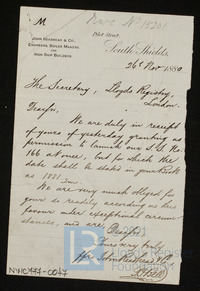 M
Nwc No 15201
John Readhead & Co.,
Engineers, Boiler Makers,
and
Iron Ship Builders.
Pilot Street,
South Shields,
26th Nov 1880
The Secretary, Lloyds Registry,
London.
Dear Sir,
We are duly in receipt
of yours of yesterday granting us
permission to launch our S.S. No
166 at once, but for which the
date shall be stated in your Book
as 1881.
We are very much obliged for
your so readily according us this
favour under exceptional circum
stances, and are, Dear Sir,
Yours very truly
John Readhead & Co
NWC444-0047